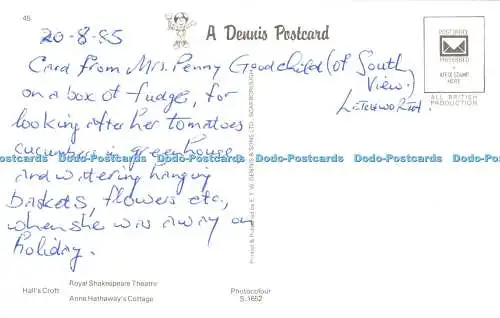 45
20-8-85
A Dennis Postcard
POSTCARD
PREFERRED
AFFIX STAMP
HERE
ALL BRITISH
PRODUCTION
Card from Mrs. Penny Goodchild (of South
View.)
LETCHWORTH.
on a box of fudge, for
looking after her tomatoes
cucumbers in greenhouse
Dodo-Postcards Dodo-Postcards Dodo-Postcards Dodo-Postcards Dodo-Postcards Dodo-Postcards
And watering hanging
baskets, flowers etc.,
when she was away on
holiday.
Printed & Published by E. T. W. DENNIS & SONS LTD., SCARBOROUGH
Hall's Croft
Royal Shakespeare Theatre
Anne Hathaway's Cottage
Photocolour
S.1652